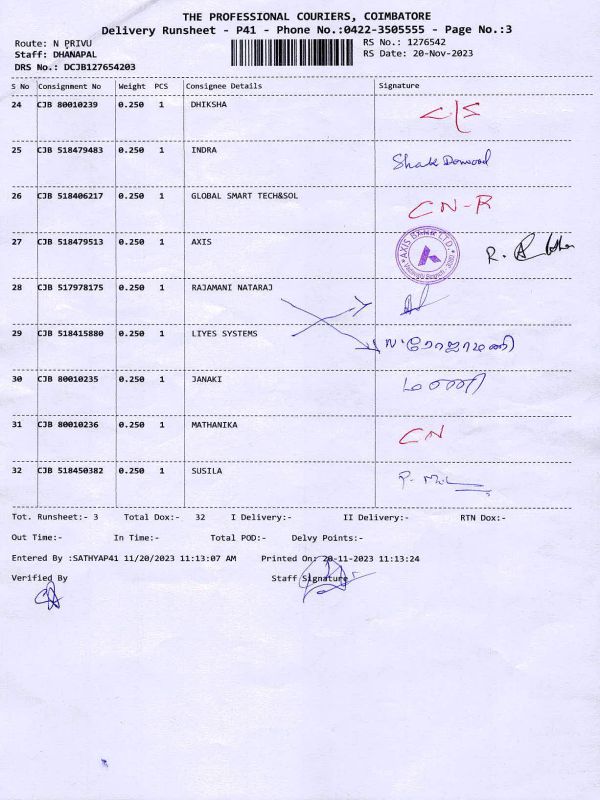 THE PROFESSIONAL COURIERS, COIMBATORE
Delivery Runsheet - P41 - Phone No.:0422-3505555 - Page No.:3
Route: N PRIVU
RS No.: 1276542
Staff: DHANAPAL
RS Date: 20-Nov-2023
DRS No.: DCJB127654203
S No Consignment No Weight PCS Consignee Details Signature
24 CJB 80010239 0.250 1 DHIKSHA
25 CJB 518479483 0.250 1 INDRA
26 CJB 518406217 0.250 1 GLOBAL SMART TECH&SOL CN-R
27 CJB 518479513 0.250 1 AXIS AXIS BANK LTD.
28 CJB 517978175 0.250 1 RAJAMANI NATARAJ
29 CJB 518415880 0.250 1 LIYES SYSTEMS
30 CJB 80010235 0.250 1 JANAKI
31 CJB 80010236 0.250 1 MATHANIKA CN
32 CJB 518450382 0.250 1 SUSILA
Tot. Runsheet:- 3 Total Dox:- 32 I Delivery:- II Delivery:- RTN Dox:-
Out Time:- In Time:- Total POD:- Delvy Points:-
Entered By :SATHYAP41 11/20/2023 11:13:07 AM Printed On: 20-11-2023 11:13:24
Verified By Staff Signature